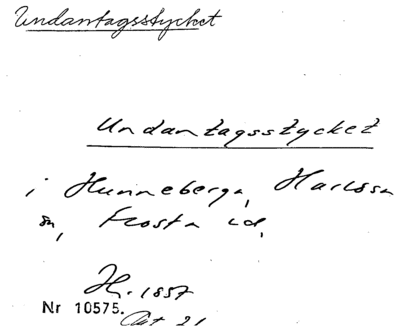 Undantagsstycket
Undantagsstycket
i Hunneberga, Harlösa
sn, Frosta hd.
H. 1857
Nr 10575.
Akt 21